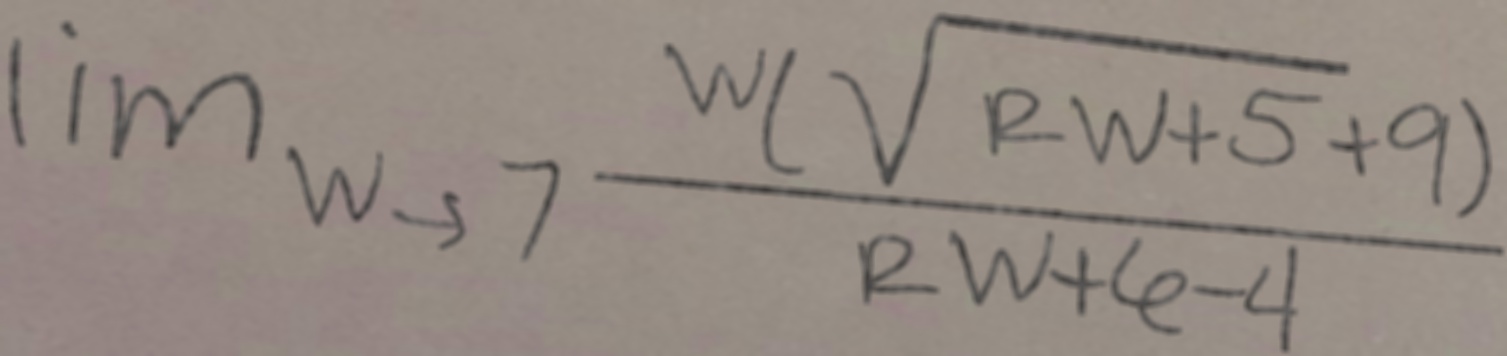 lim w→7 w(√RW+5+9)
RW+6-4